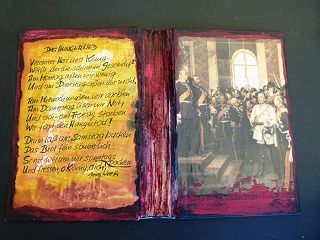 DAS HUNGERLIED
Verehrter Herr und König
Weißt du die schlimme Geschicht?
Am Montag aßen wir wenig
Und am Dienstag aßen wir nicht.
Am Mittwoch mußten wir darben
Am Donnerstag litten wir Not;
Und ach, am Freitag starben
Wir fast den Hungertod!
Drum laß am Samstag backen
Das Brot fein säuberlich
Sonst werden wir sonntags packen
Und fressen, o König, dich!
Georg Weerth